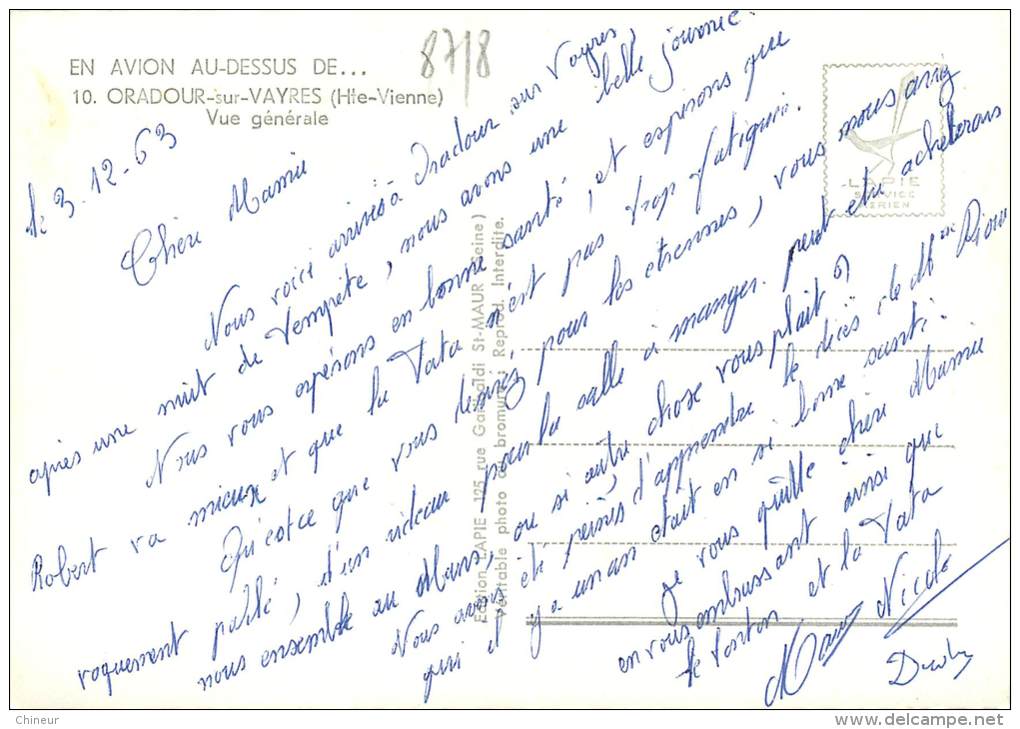 EN AVION AU-DESSUS DE...
10. ORADOUR-sur-VAYRES (Hte-Vienne)
Vue générale
87/8
LAPIE
SERVICE
AERIEN
Edition LAPIE - 125, rue Garibaldi St-MAUR (Seine)
Véritable photo au bromure - Reprod. Interdite.
le 3.12-63
Chère Mamie
Nous voici arrivés à Oradour sur Vayres,
après une nuit de tempête, nous avons une belle journée.
Nous vous espérons en bonne santé, et espérons que
Robert va mieux et que la Tata n'est pas trop fatiguée.
Qu'est ce que vous désirez pour les étrennes, vous nous aviez
vaguement parlé, d'un rideau pour la salle à manger. peut etre achèterons
nous ensemble au Mans, ou si autre chose vous plait ?
Nous avons été peinés d'apprendre le décès de Mme
qui il y a un an était en si bonne santé.
Je vous quitte chère Mamie
en vous embrassant ainsi que
le Tonton et la Tata
Nicole
Chineur
delcampe.net